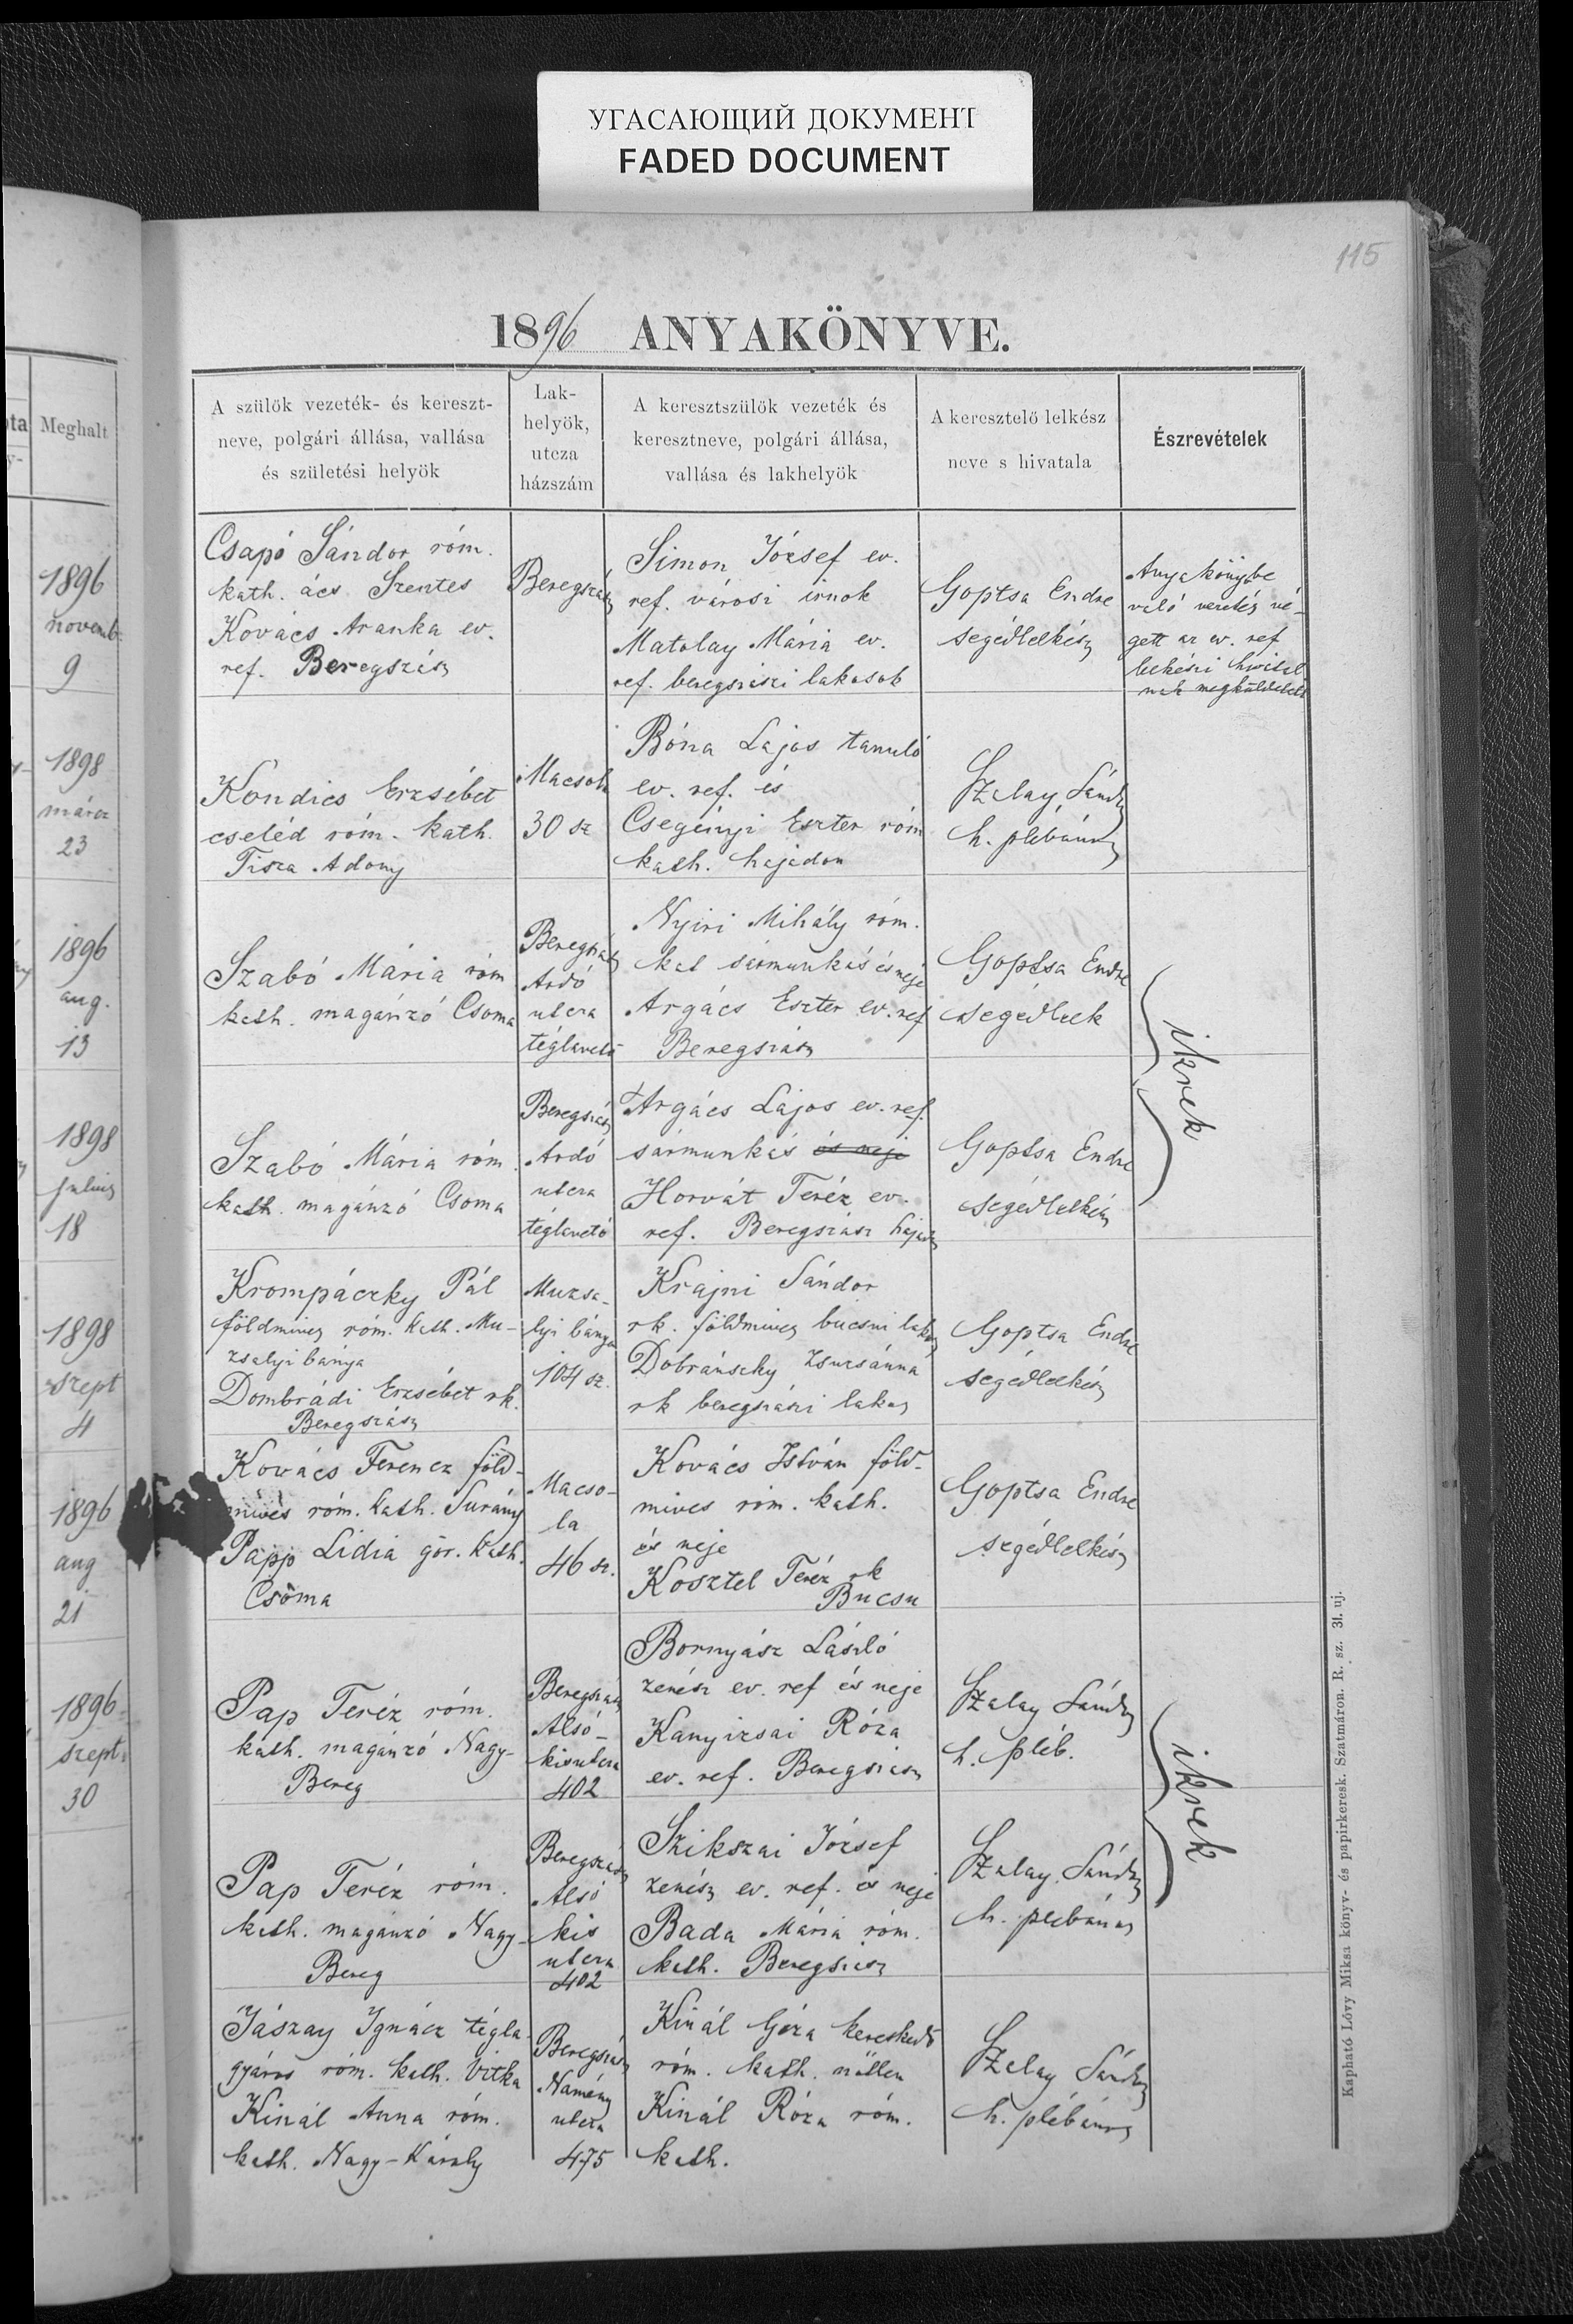 УГАСАЮЩИЙ ДОКУМЕНТ
FADED DOCUMENT
115
1896 ANYAKÖNYVE.
Meghalt
1896
novemb.
9
1898
márcz
23
1896
aug.
13
1898
julius
18
1898
szept
4
1896
aug
21
1896
szept.
30
A szülök vezeték- és kereszt-
neve, polgári állása, vallása
és születési helyök
Lak-
helyök,
utcza
házszám
A keresztszülök vezeték és
keresztneve, polgári állása,
vallása és lakhelyök
A keresztelő lelkész
neve s hivatala
Észrevételek
Csapó Sándor róm.
kath. ács Szentes
Kovács Aranka ev.
ref. Beregszász
Beregszász
Simon József ev.
ref. városi irnok
Matolay Mária ev.
ref. beregszászi lakosok
Goptsa Endre
segédlelkész
Anyakönyvbe
való vezetés vé-
gett az ev. ref
lelkészi hivatal
nak megküldetett
Kondics Erzsébet
cseléd róm. kath.
Tisza Adony
Macsola
30 sz
Bóna Lajos tanuló
ev. ref. és
Csegényi Eszter róm
kath. hajadon
Szalay Sándor
h. plébános
Szabó Mária róm
kath. magánzó Csoma
Beregszász
Ardó
utcza
téglavető
Nyiri Mihály róm.
kat sármunkás és neje
Argács Eszter ev. ref
Beregszász
Goptsa Endre
segédlelk
ikrek
Szabó Mária róm.
kath. magánzó Csoma
Beregszász
Ardó
utcza
téglavető
Argács Lajos ev. ref.
sármunkás és neje
Horvát Teréz ev.
ref. Beregszász hajadon
Goptsa Endre
segédlelkész
Krompáczky Pál
földmives róm. kath. Mu-
zsalyi bánya
Dombrádi Erzsébet rk.
Beregszász
Muzsa-
lyi bánya
104 sz.
Krajni Sándor
rk. földmives bucsui lakos
Dobránszky Zsuzsánna
rk beregszászi lakos
Goptsa Endre
segédlelkész
Kovács Ferencz föld-
mives róm. kath. Surány
Papp Lidia gör. kath.
Csoma
Macso-
la
46 sz.
Kovács István föld-
mives róm. kath.
és neje
Kosztel Teréz rk
Bucsu
Goptsa Endre
segédlelkész
Pap Teréz róm.
kath. magánzó Nagy-
Bereg
Beregszász
Alsó-
kisutcza
402
Bornyász László
zenész ev. ref és neje
Kanyizsai Róza
ev. ref. Beregszász
Szalay Sándor
h. pléb.
ikrek
Pap Teréz róm.
kath. magánzó Nagy-
Bereg
Beregszász
Alsó
kis
utcza
402
Szikszai József
zenész ev. ref. és neje
Bada Mária róm.
kath. Beregszász
Szalay Sándor
h. plébános
Jászay Ignácz tégla
gyáros róm. kath. Vitka
Kinál Anna róm.
kath. Nagy-Károly
Beregszász
Namény
utcza
475
Kinál Géza kereskedő
róm. kath. nőtlen
Kinál Róza róm.
kath.
Szalay Sándor
h. plébános
Kapható Lővy Miksa könyv- és papirkeresk. Szatmáron. R. sz. 31. uj.